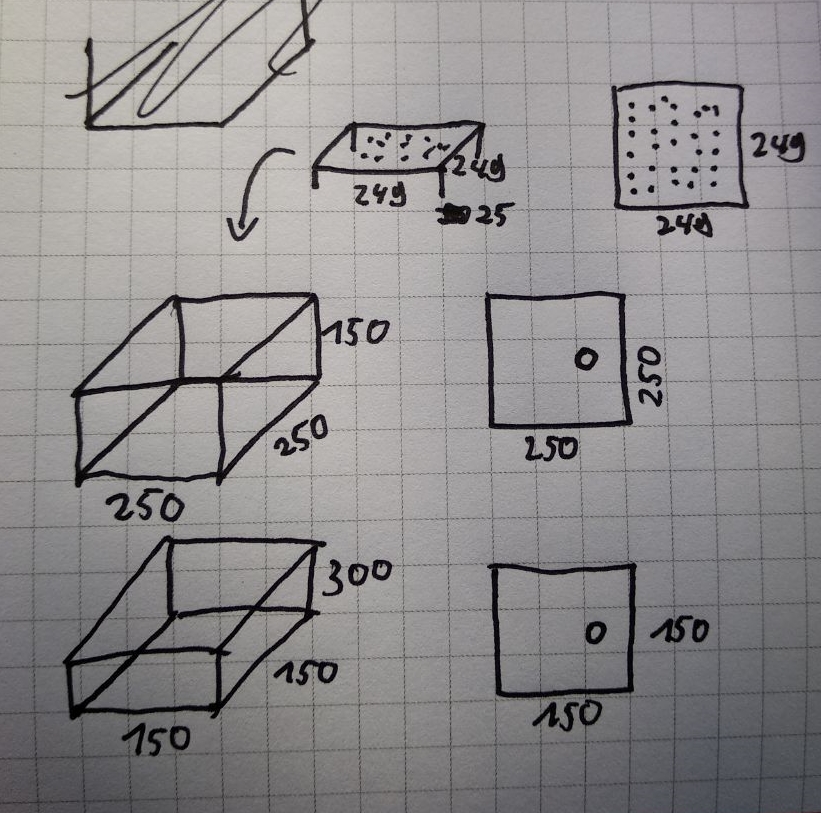 249
249
25
249
249
150
250
250
250
250
300
150
150
150
150